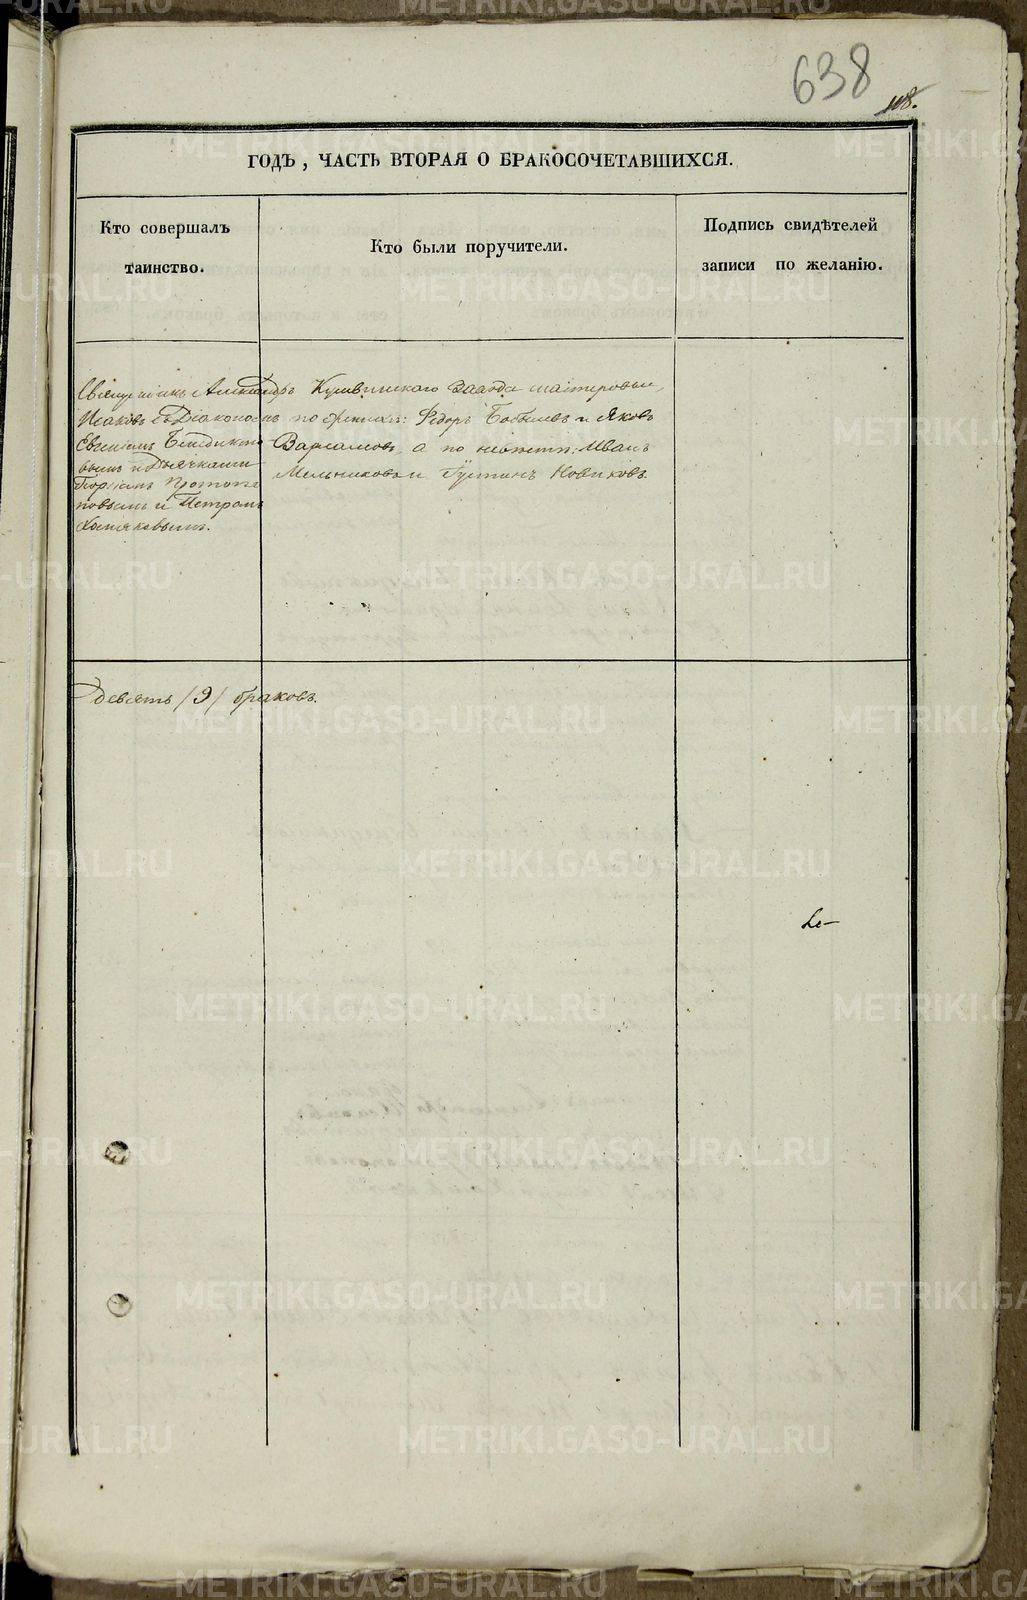 638
118.
ГОДЪ, ЧАСТЬ ВТОРАЯ О БРАКОСОЧЕТАВШИХСЯ.
Кто совершалъ
таинство.
Кто были поручители.
Подпись свидѣтелей
записи по желанію.
Священникъ Александръ
Исаковъ съ Діакономъ
Евгеніемъ Бенедикто
вымъ и Дьячками
Протопо
повымъ и Петромъ
Хомяковымъ.
Кушвинскаго Завода мастеровые
по женихѣ: Ѳедоръ Бобылевъ и Яковъ
Варламовъ, а по невѣстѣ: Иванъ
Мельниковъ и Густинъ Новиковъ.
девять /9/ браковъ.
METRIKI.GASO-URAL.RU